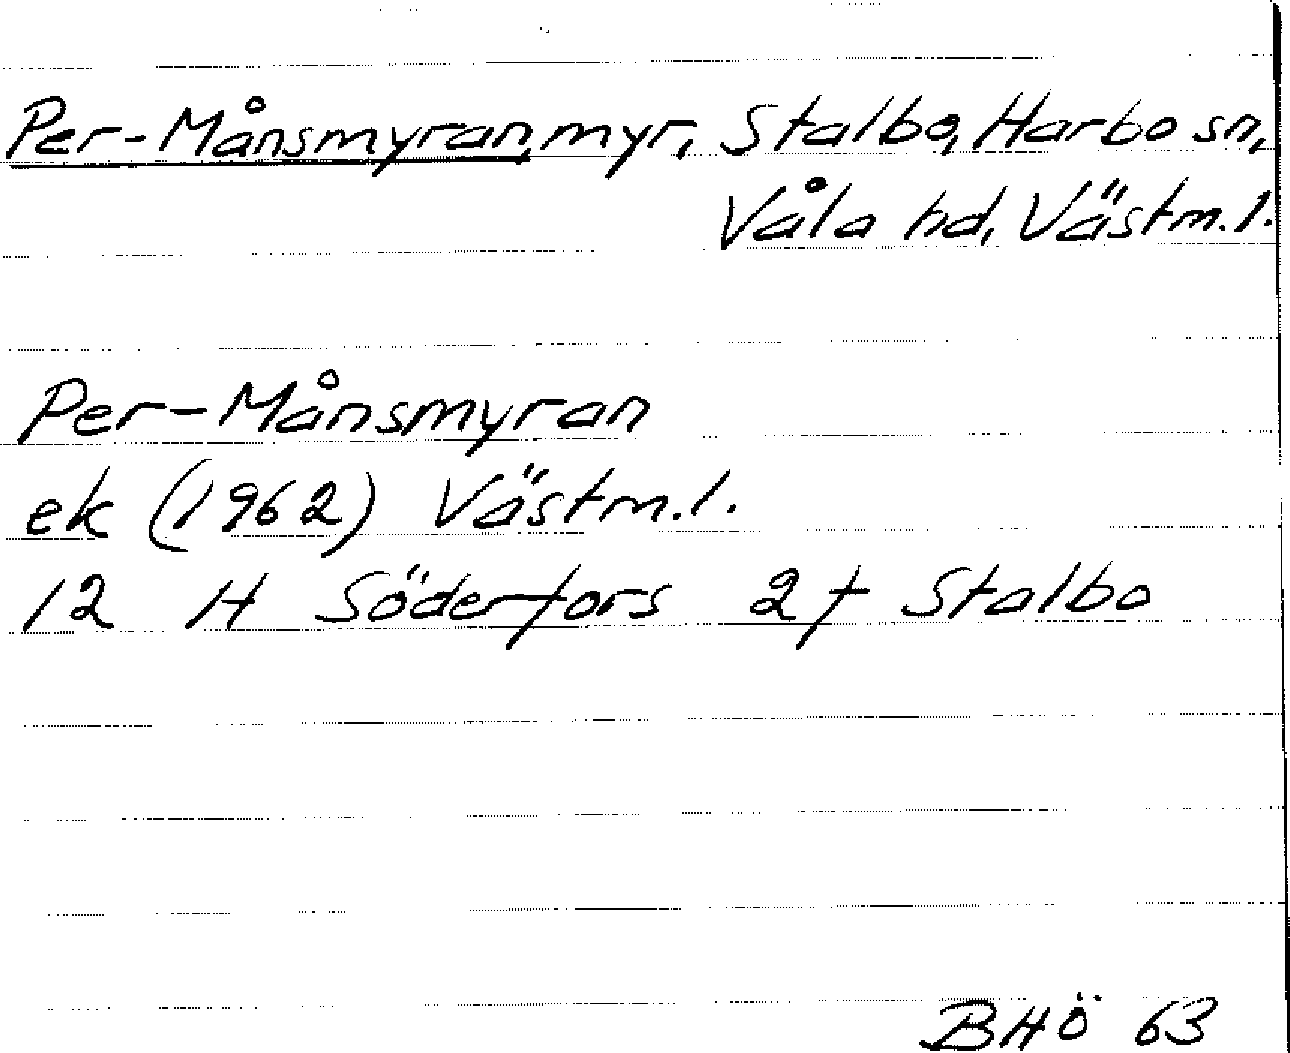 Per-Månsmyran, myr, Stalbo, Harbo sn,
Våla hd, Västm.l.
Per-Månsmyran
ek (1962) Västm.l.
12 H Söderfors 2f Stalbo
BHÖ 63